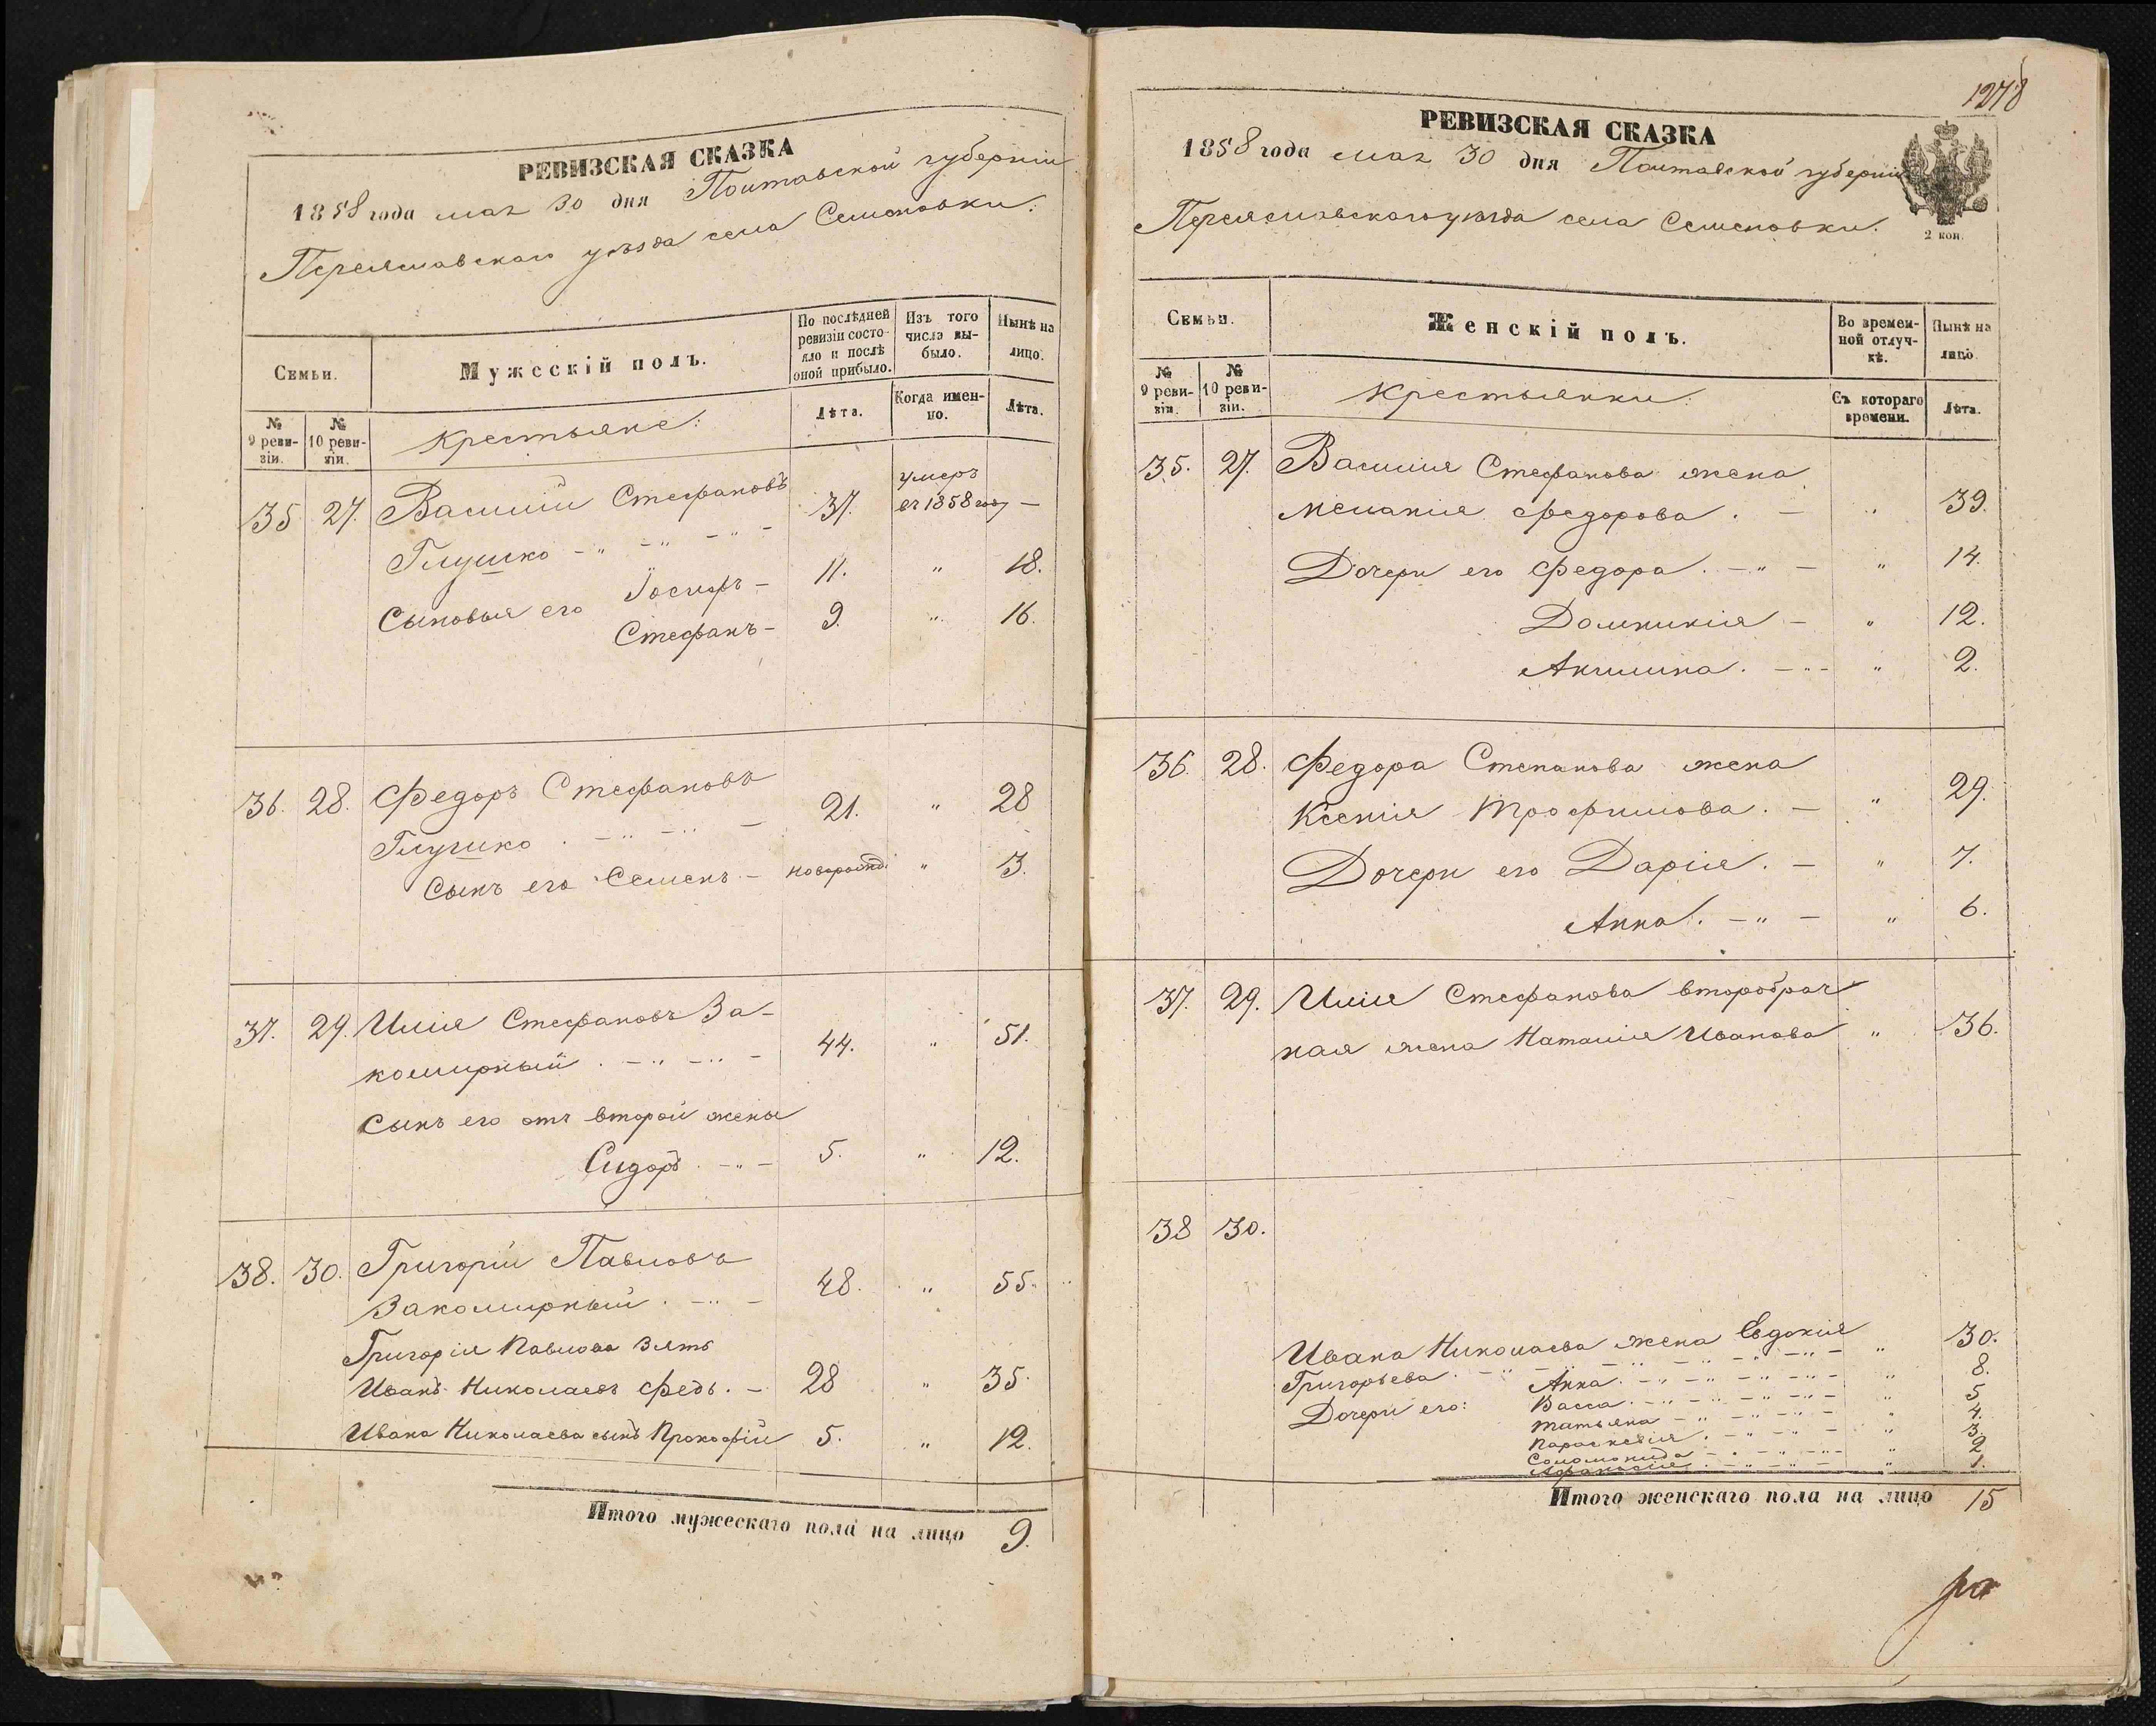 РЕВИЗСКАЯ СКАЗКА
1858 года мая 30 дня Полтавской губерніи
Переяславскаго уѣзда села Семеновки.
Семьи.
Мужескій полъ.
По послѣдней ревизіи состояло и послѣ оной прибыло.
Изъ того числа выбыло.
Нынѣ на лицо.
№ 9 ревизіи.
№ 10 ревизіи.
Крестьяне:
Лѣта.
Когда именно.
Лѣта.
35 27. Василій Стефановъ 37. умеръ въ 1858 году —
Глушко
Сыновья его Іосифъ 11. " 18.
Стефанъ 9. " 16.
36. 28. Федоръ Стефановъ 21. " 28
Глушко
Сынъ его Семенъ новорожд. " 3.
37. 29. Илія Стефановъ За-
комирный 44. " 51.
Сынъ его отъ второй жены
Сидоръ 5. " 12.
38. 30. Григорій Павловъ
Закомирный 48. " 55.
Григорія Павлова зять
Иванъ Николаевъ Федь. 28 " 35.
Ивана Николаева сынъ Прокофій 5. " 12.
Итого мужескаго пола на лицо 9.
1278
РЕВИЗСКАЯ СКАЗКА
1858 года мая 30 дня Полтавской губерніи
Переяславскаго уѣзда села Семеновки.
2 коп.
Семьи.
Женскій полъ.
Во временной отлучкѣ.
Нынѣ на лицо.
№ 9 ревизіи.
№ 10 ревизіи.
Крестьянки.
Съ котораго времени.
Лѣта.
35. 27. Василія Стефанова жена
Меланія Федорова. " 39.
Дочери его Федора. " 14.
Домникія " 12.
Акилина. " 2.
36. 28. Федора Степанова жена
Ксенія Трофимова. " 29.
Дочери его Дарія. " 7.
Анна. " 6.
37. 29. Илія Стефанова второбрач-
ная жена Наталія Иванова " 36.
38 30.
Ивана Николаева жена Евдокія
Григорьева. " 30.
Дочери его: Анна. " 8.
Васса. " 5.
Татьяна " 4.
Параскевія. " 3.
Соломонида " 2.
Афанасія. " 1.
Итого женскаго пола на лицо 15